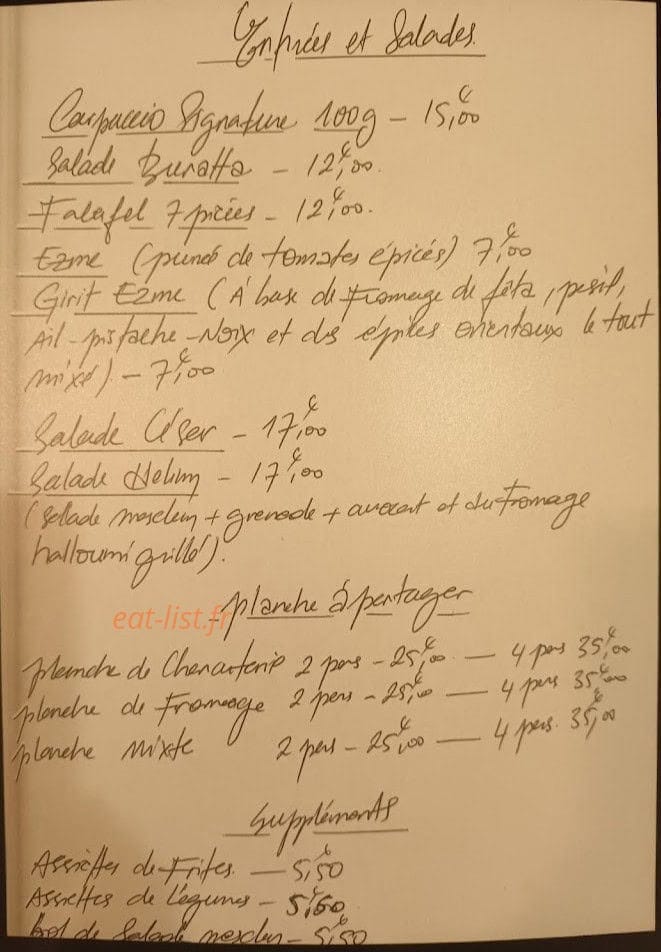 Entrées et Salades.
Carpaccio Signature 100g - 15,€00
Salade Buratta - 12,€00.
Falafel 7 pièces - 12,€00.
Ezme (purée de tomates épicés) 7,€00
Girit Ezme (À base de Fromage de féta, persil,
Ail-pistache-Noix et des épices orientaux le tout
mixé) - 7,€00
Salade César - 17,€00
Salade Helim - 17,€00
(Salade mesclun + grenade + avocat et du Fromage
halloumi grillé).
planche à partager
eat-list.fr
planche de Charcuterie 2 pers - 25,€00 — 4 pers 35,€00
planche de Fromage 2 pers - 25,€00 — 4 pers 35,€00
planche Mixte 2 pers - 25,€00 — 4 pers. 35,€00
Suppléments
Assiettes de Frites. — 5,€50
Assiettes de légumes - 5,€50
bol de Salade mesclun - 5,€50